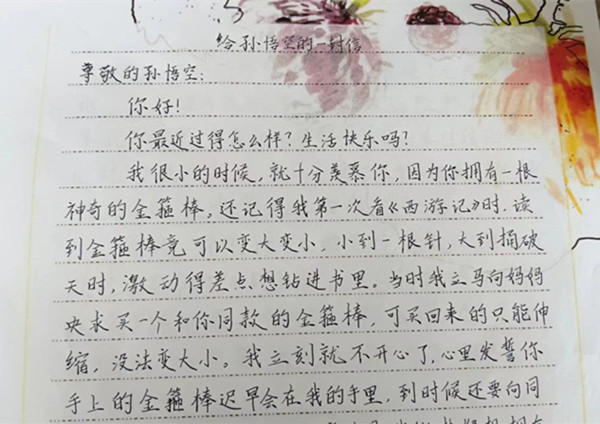 给孙悟空的一封信
尊敬的孙悟空:
你好!
你最近过得怎么样?生活快乐吗?
我很小的时候,就十分羡慕你,因为你拥有一根
神奇的金箍棒,还记得我第一次看《西游记》时,读
到金箍棒竟可以变大变小,小到一根针,大到捅破
天时,激动得差点想钻进书里。当时我立马向妈妈
央求买一个和你同款的金箍棒,可买回来的只能伸
缩,没法变大小。我立刻就不开心了,心里发誓你
手上的金箍棒迟早会在我的手里,到时候还要向同